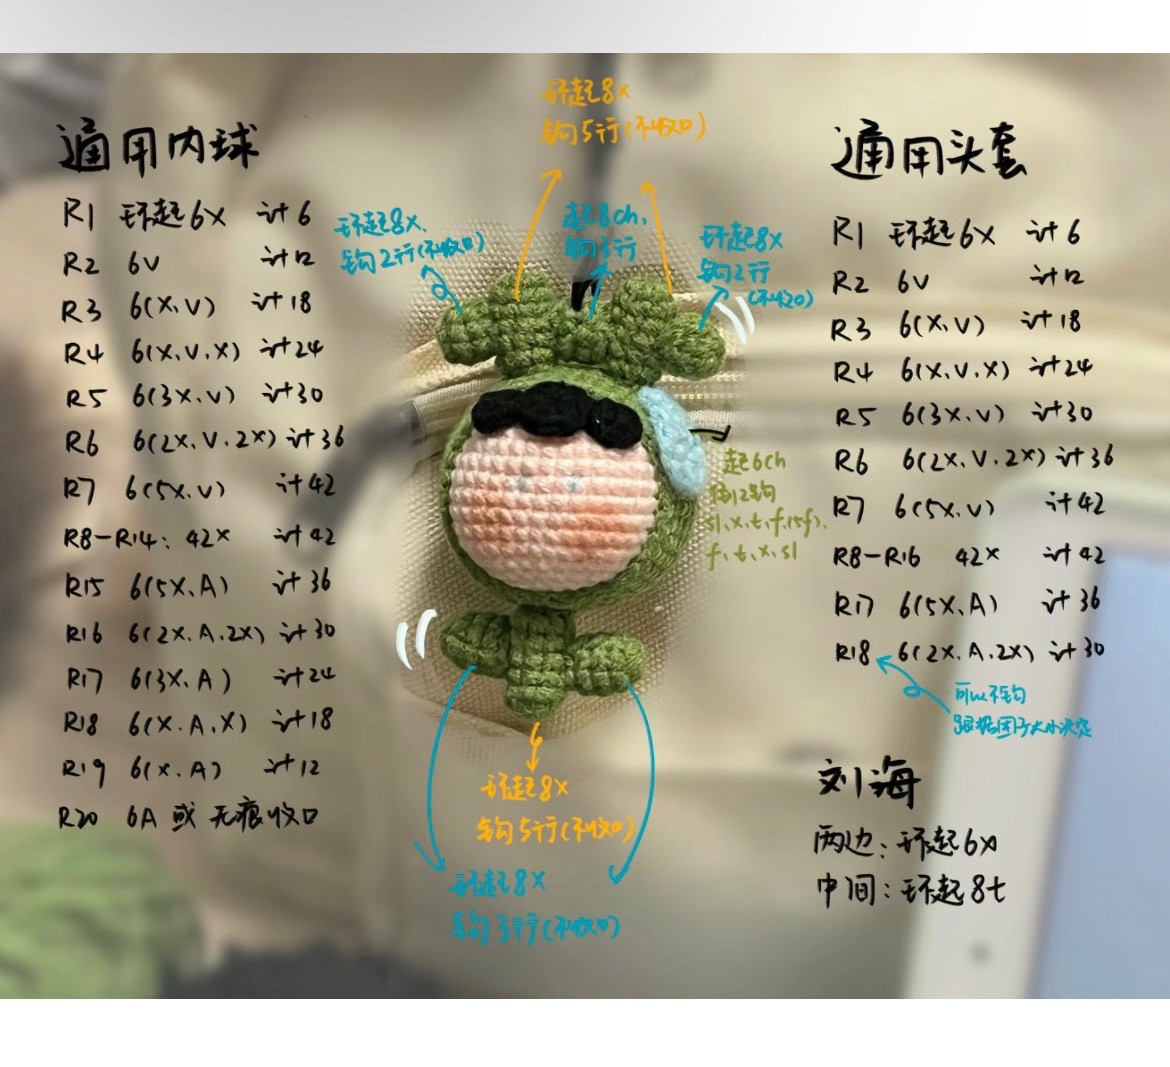 通用内球
R1 环起6X 计6
R2 6V 计12
R3 6(X,V) 计18
R4 6(X,V,X) 计24
R5 6(3X,V) 计30
R6 6(2X,V,2X) 计36
R7 6(5X,V) 计42
R8-R14: 42X 计42
R15 6(5X,A) 计36
R16 6(2X,A,2X) 计30
R17 6(3X,A) 计24
R18 6(X,A,X) 计18
R19 6(X,A) 计12
R20 6A 或 无痕收口
环起8X
钩5行(不收口)
环起8X,
钩2行(不收口)
起8ch,
钩3行
环起8X
钩2行
(不收口)
起6ch
倒2钩
sl,x,t,f,(5f),
f,t,x,sl
环起8X
钩5行(不收口)
环起8X
钩3行(不收口)
通用头套
R1 环起6X 计6
R2 6V 计12
R3 6(X,V) 计18
R4 6(X,V,X) 计24
R5 6(3X,V) 计30
R6 6(2X,V,2X) 计36
R7 6(5X,V) 计42
R8-R16 42X 计42
R17 6(5X,A) 计36
R18 6(2X,A,2X) 计30
可以不钩
跟据团子大小决定
刘海
两边:环起6X
中间:环起8t